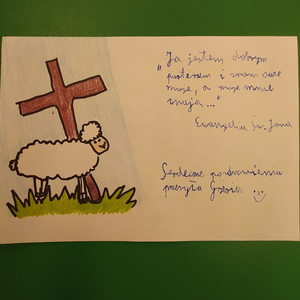 "Ja jestem dobrym
pasterzem i znam owce
moje, a moje mnie
znają..."
Ewangelia Św. Jana
Serdeczne pozdrowienia
przesyła